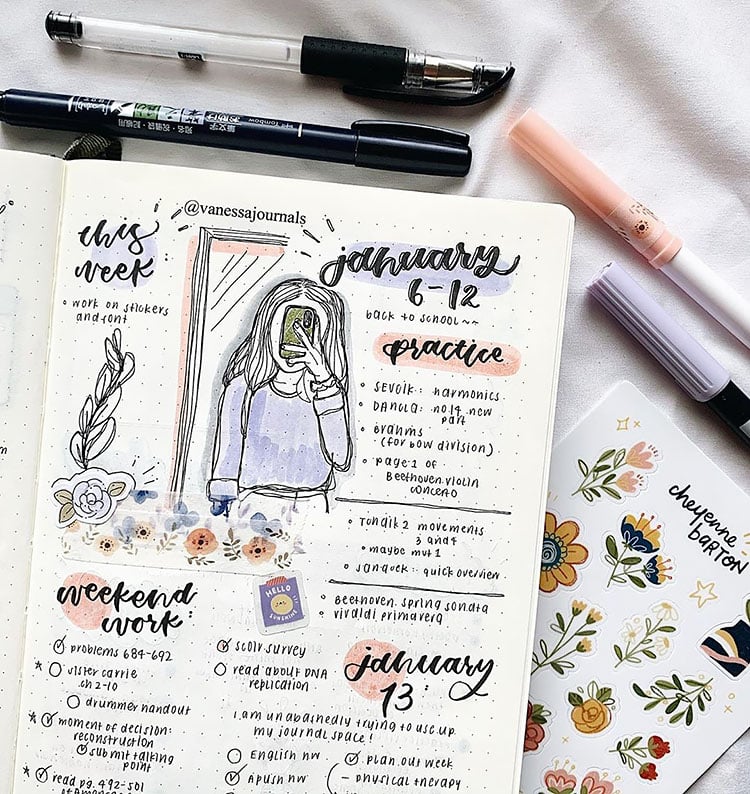 @vanessajournals
this
week:
• work on stickers
and font
january
6-12
back to school~~
practice
• SEVCIK: harmonics
• DANCLA: no.14 new
part
• Brahms
(for bow division)
• page 1 of
Beethoven violin
concerto
2 movements
3 and 4
• maybe mvt 1
quick overview
• Beethoven spring sonata
• vivaldi primavera
HELLO
SUNSHINE
weekend
work:
problems 684-692
sister carrie
ch 2-10
drummer handout
moment of decision:
reconstruction
submit talking
point
read pg. 492-501
scoir survey
read about DNA
replication
january
13:
i am unabashedly trying to use up
my journal space!
English hw
Apush hw
plan out week
- physical therapy
cheyenne
BARTON
Tombow